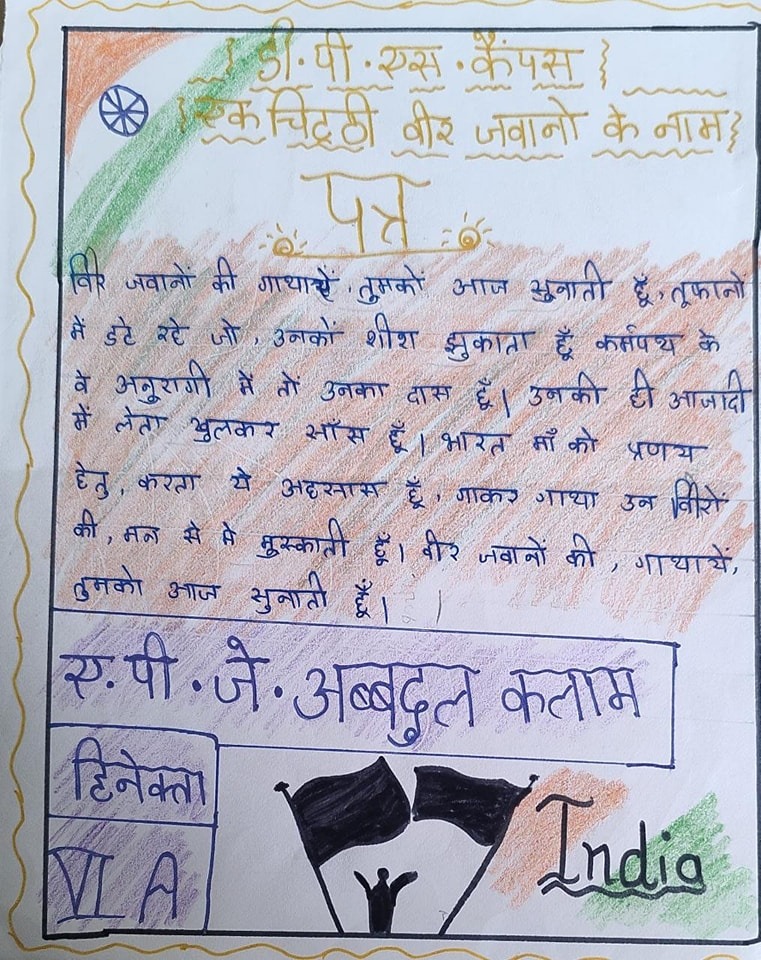 { डी.पी.एस.कैंपस }
{ एक चिट्ठी वीर जवानो के नाम }
पत्र
विर जवानों की गाथाऐं, तुमकों आज सुनाती हूँ, तूफानों
में डटे रहे जो, उनकों शीश झुकाता हूँ कर्मपथ के
वे अनुरागी में तों उनका दास हूँ। उनकी ही आजादी
में लेता खुलकर साँस हूँ। भारत माँ को प्रणय
हेतु, करता ये अहसास हूँ, गाकर गाथा उन विरों
की, मन से मे मुस्काती हूँ। वीर जवानों की, गाथायें,
तुमको आज सुनाती हूँ।
ए.पी.जे.अब्बदुल कलाम
हिनेक्ता
VI A
India